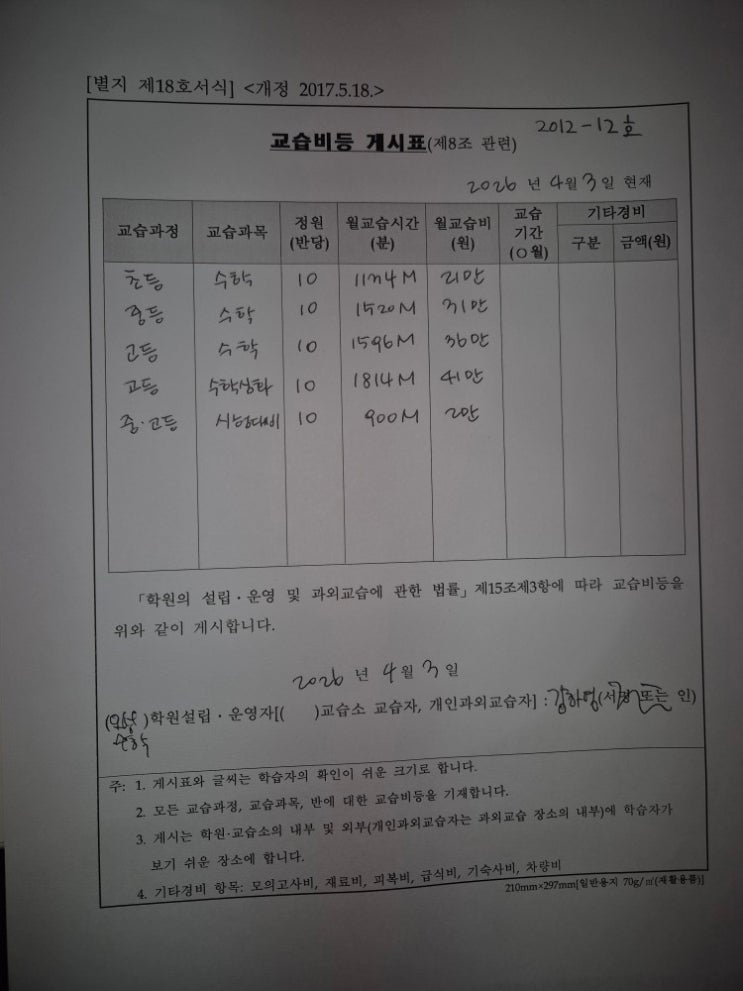 [별지 제18호서식] <개정 2017.5.18.>
2012-12호
교습비등 게시표(제8조 관련)
2026 년 4월 3일 현재
교습과정 교습과목 정원(반당) 월교습시간(분) 월교습비(원) 교습기간(O월) 기타경비 구분 금액(원)
초등 수학 10 1134M 21만
중등 수학 10 1520M 31만
고등 수학 10 1596M 36만
고등 수학심화 10 1814M 41만
중·고등 시험대비 10 900M 2만
「학원의 설립·운영 및 과외교습에 관한 법률」제15조제3항에 따라 교습비등을
위와 같이 게시합니다.
2026 년 4월 3일
( 수학)학원설립·운영자[( )교습소 교습자, 개인과외교습자] : (서명 또는 인)
주: 1. 게시표와 글씨는 학습자의 확인이 쉬운 크기로 합니다.
2. 모든 교습과정, 교습과목, 반에 대한 교습비등을 기재합니다.
3. 게시는 학원·교습소의 내부 및 외부(개인과외교습자는 과외교습 장소의 내부)에 학습자가
보기 쉬운 장소에 합니다.
4. 기타경비 항목: 모의고사비, 재료비, 피복비, 급식비, 기숙사비, 차량비
210mm×297mm[일반용지 70g/㎡(재활용품)]